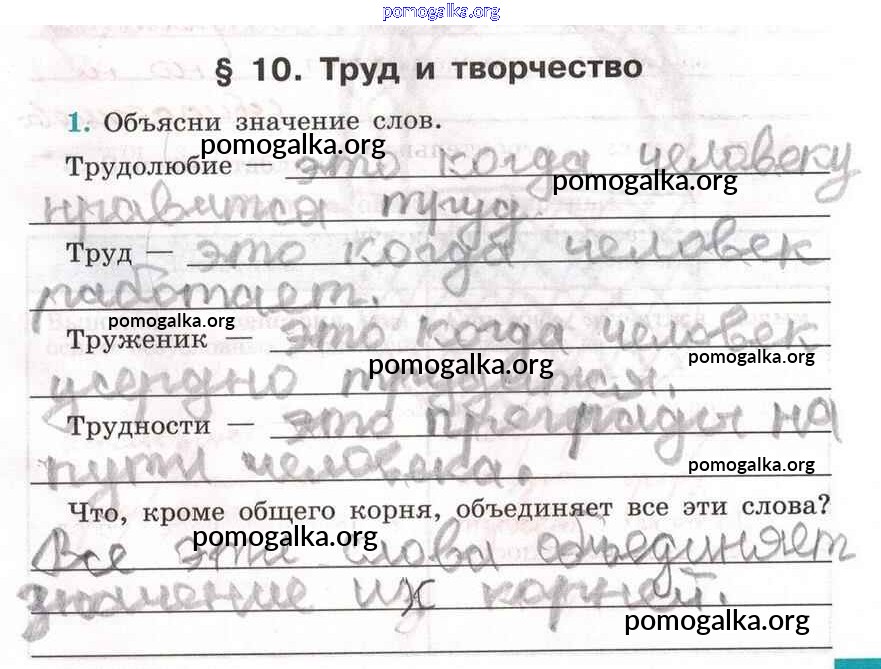 pomogalka.org
§ 10. Труд и творчество
1. Объясни значение слов.
pomogalka.org
Трудолюбие — это когда человеку
pomogalka.org
нравится труд
Труд — это когда человек
работает.
pomogalka.org
Труженик — это когда человек
pomogalka.org
pomogalka.org
усердно трудится.
Трудности — это преграды на
pomogalka.org
пути человека.
Что, кроме общего корня, объединяет все эти слова?
pomogalka.org
Все эти слова объединяет
значение их корней.
pomogalka.org